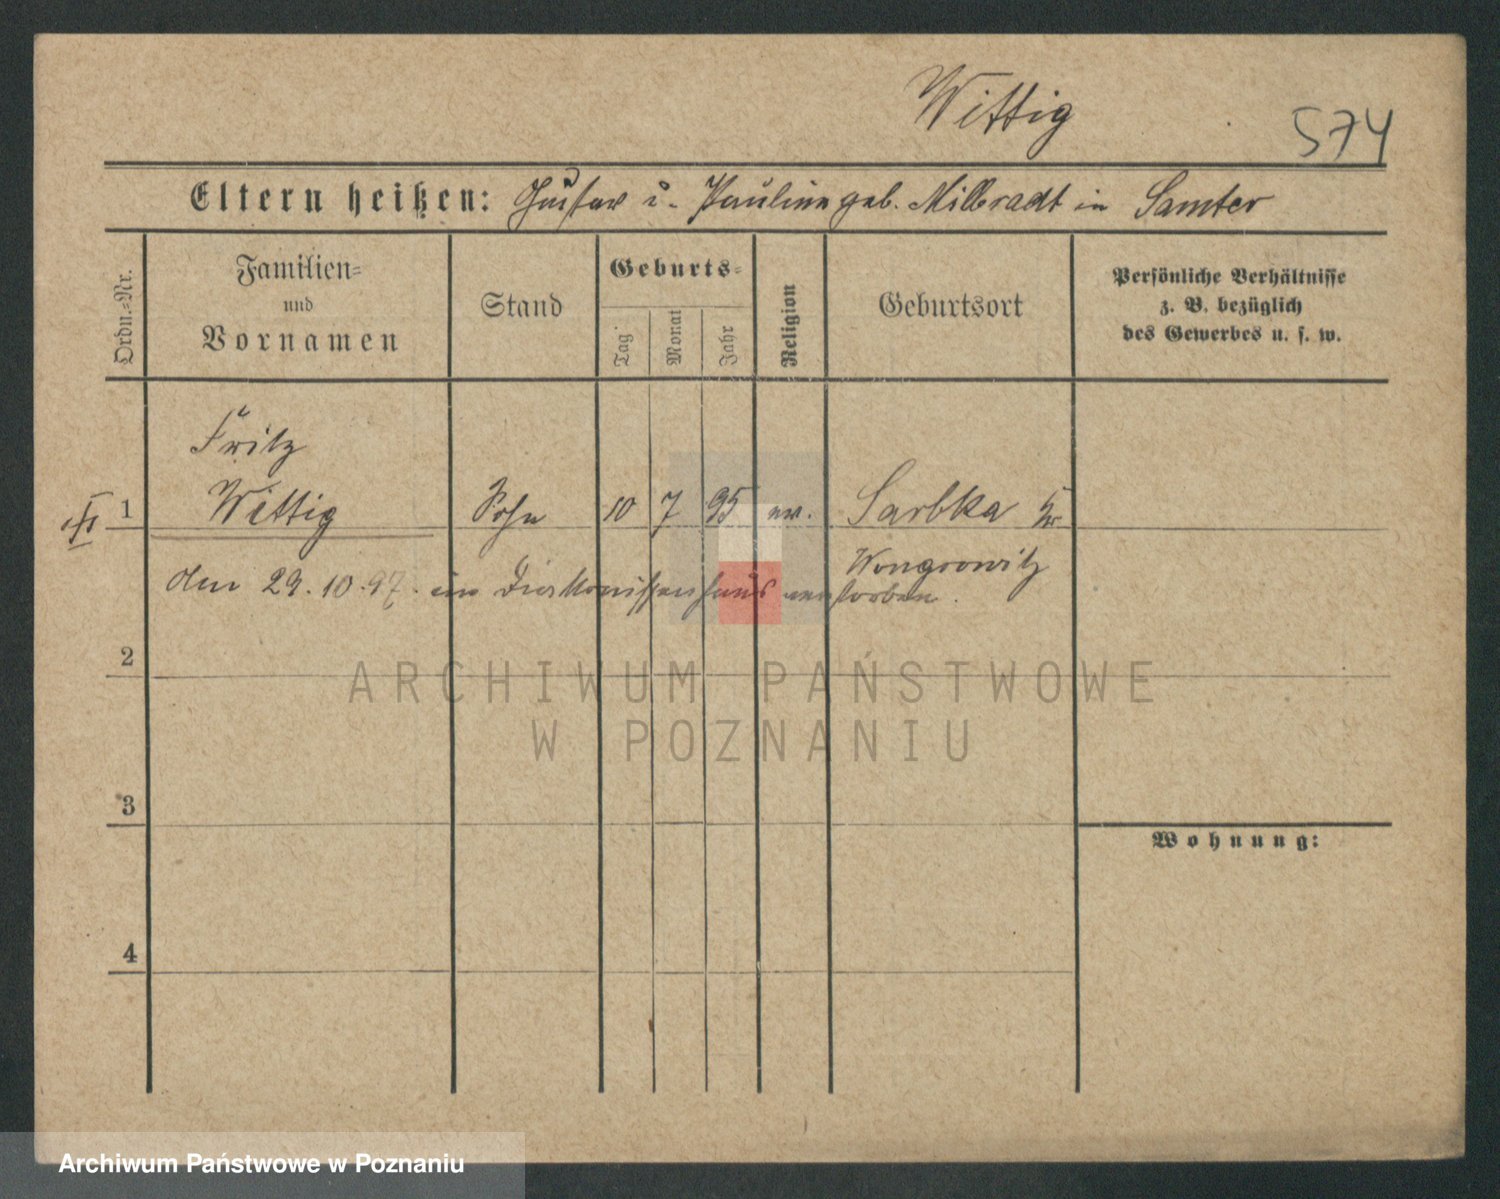 Wittig
574
Eltern heißen: Gustav u. Pauline geb. Milbradt in Samter
Ordn.=Nr.
Familien=
und
Vornamen
Stand
Geburts=
Tag
Monat
Jahr
Religion
Geburtsort
Persönliche Verhältnisse
z. B. bezüglich
des Gewerbes u. s. w.
Fritz
1 Wittig Sohn 10 7 95 ev. Sarbka Kr.
Wongrowitz
den 29. 10. 97. im Diakonissenhaus verstorben.
2
ARCHIWUM PAŃSTWOWE
W POZNANIU
3
Wohnung:
4
Archiwum Państwowe w Poznaniu